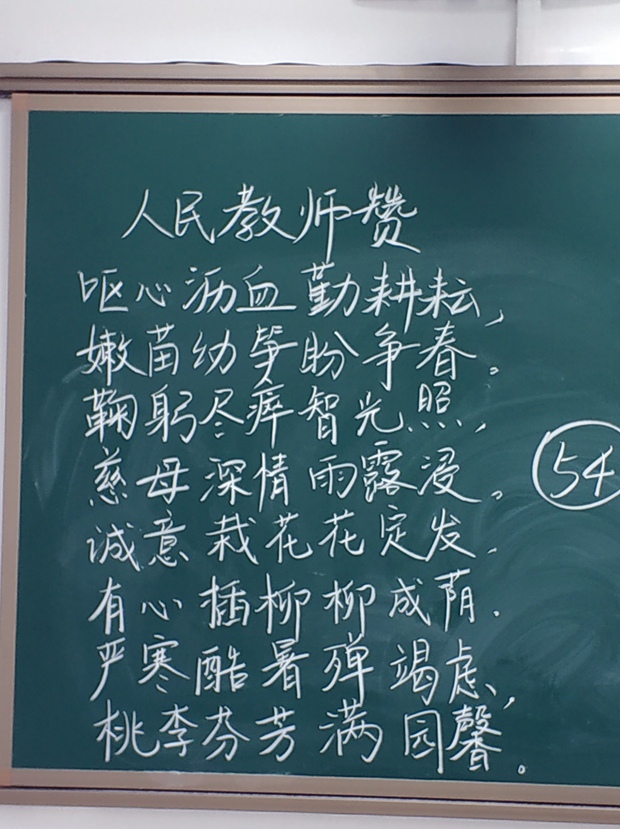 人民教师赞
呕心沥血勤耕耘,
嫩苗幼笋盼争春。
鞠躬尽瘁智光照,
慈母深情雨露浸。
54
诚意栽花花定发,
有心插柳柳成荫.
严寒酷暑殚竭虑,
桃李芬芳满园馨。